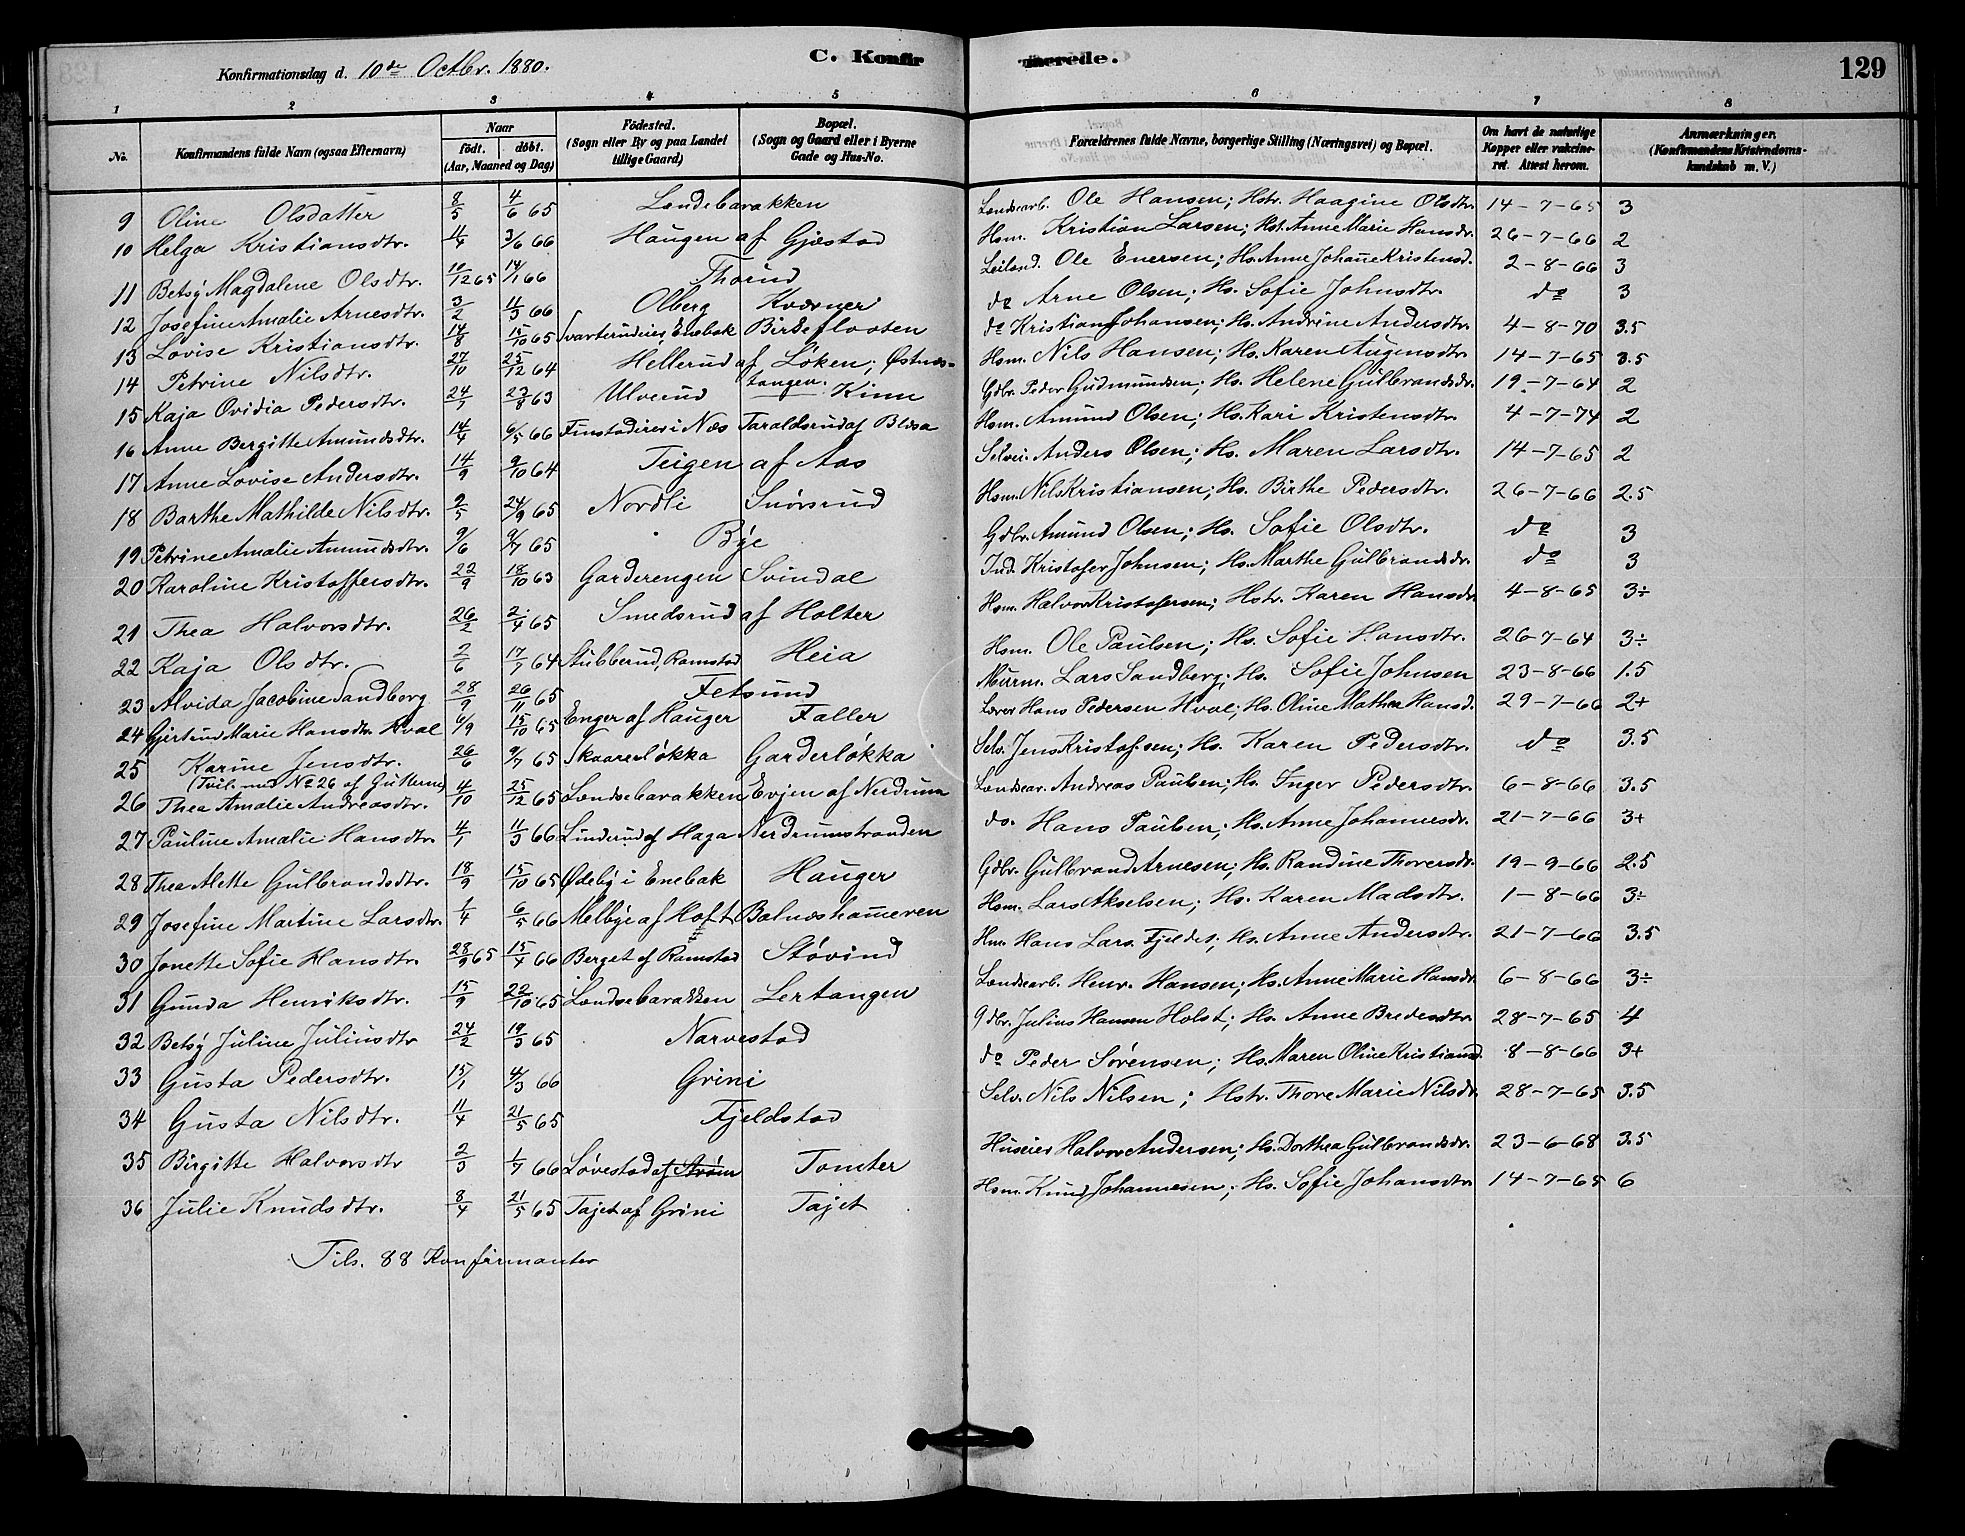 Konfirmationsdag d. 10de Octbr. 1880.
C. Konfirmerede.
129
1 2 3 4 5 6 7 8
No.
Konfirmandens fulde Navn (ogsaa Efternavn)
Naar
födt. döbt.
(Aar, Maaned og Dag)
Födested.
(Sogn eller By og paa Landet tillige Gaard)
Bopæl.
(Sogn og Gaard eller i Byerne Gade og Hus-No.
Forældrenes fulde Navne, borgerlige Stilling (Næringsvei) og Bopæl.
Om havt de naturlige Kopper eller vakcineret. Attest herom.
Anmærkninger.
(Konfirmandens Kristendomskundskab m. V.)
9 Oline Olsdatter 8/5 4/6 65 Lændsebarakken Lændsearb. Ole Hansen; Hstr. Haagine Olsdtr. 14-7-65 3
10 Helga Kristiansdtr. 4/4 3/6 66 Haugen af Gjæstad Hsm. Kristian Larsen; Hst. Anne Marie Hansdr. 26-7-66 2
11 Betsÿ Magdalene Olsdtr. 10/12 65 14/1 66 Thorud Leiland. Ole Enersen; Hs. Anne Johane Kristensd. 2-8-66 3
12 Josefine Amalie Arnesdtr. 3/2 11/3 66 Olberg Kværner do Arne Olsen; Hs. Sofie Johnsdtr. do 3
13 Lovise Kristiansdtr. 14/8 15/10 65 Svarterudeie, Enebak Birkefloaten do Kristian Johansen; Hs. Andrine Andersdtr. 4-8-70 3.5
14 Petrine Nilsdtr. 27/10 25/12 64 Hellerud af Løken; Østnæstangen. Hsm. Nils Hansen; Hs. Karen Augensdtr. 14-7-65 3.5
15 Kaja Ovidia Pedersdtr. 24/7 23/8 63 Ulverud Kinn Gdbr. Peder Gudmundsen; Hs. Helene Gulbrandsdr. 19-7-64 2
16 Anne Bergitte Amundsdtr. 14/4 6/5 66 Finstadeiei i Næs Taraldsrud af Bløsa Hsm. Amund Olsen; Hs. Kari Kristensdtr. 4-7-74 2
17 Anne Lovise Andersdtr. 14/9 9/10 64 Teigen af Aas Selvei. Anders Olsen; Hs. Maren Larsdtr. 14-7-65 2
18 Barthe Mathilde Nilsdtr. 2/5 24/9 65 Nordli Snørsrud Hsm. Nils Kristiansen; Hs. Birthe Pedersdtr. 26-7-66 2.5
19 Petrine Amalie Amundsdtr. 9/6 9/7 65 Bÿe Gdbr. Amund Olsen; Hs. Sofie Olsdtr. do 3
20 Karoline Kristoffersdtr. 22/9 18/10 63 Garderengen Svindal Ind. Kristofer Johnsen; Hs. Marthe Gulbrandsdr. do 3
21 Thea Halvorsdtr. 26/2 2/4 65 Smedsrud af Holter Hsm. Halvor Kristofersen; Hstr. Karen Hansdr. 4-8-65 3÷
22 Kaja Olsdtr. 2/6 17/7 64 Stubberud, Ramstad Heia Hsm. Ole Paulsen; Hs. Sofie Hansdtr. 26-7-64 3÷
23 Alvida Jacobine Sandberg 28/9 26/11 65 Fetsund Murm. Lars Sandberg; Hs. Sofie Johnsen 23-8-66 1.5
24 Gjertrud Marie Hansdtr. Hval 6/9 15/10 65 Enger af Hauger Faller Lærer Hans Pedersen Hval; Hs. Oline Mathea Hansd. 29-7-66 2+
25 Karine Jensdtr. 26/6 9/7 65 Skaarerløkka Garderløkka Selv. Jens Kristofsen; Hs. Karen Pedersdtr. do 3.5
(Tvil. med No 26 af Gutterne)
26 Thea Amalie Andreasdtr. 4/10 25/12 65 Lændsebarakken Evjen af Nerdrum Lændsear. Andreas Paulsen; Hs. Inger Pedersdtr. 6-8-66 3.5
27 Pauline Amalie Hansdtr. 4/1 11/3 66 Linderud af Haga Nerdrumstranden do. Hans Paulsen; Hs. Anne Johannesdr. 21-7-66 3+
28 Thea Mette Gulbrandsdtr. 18/9 15/10 65 Ødebÿ i Enebak Hauger Gdbr. Gulbrand Arnesen; Hs. Randine Thoresdr. 19-9-66 2.5
29 Josefine Martine Larsdtr. 1/4 6/5 66 Melbÿe af Hoft Balnæshameren Hsm. Lars Akselsen; Hs. Karen Madsdtr. 1-8-66 3÷
30 Jonette Sofie Hansdtr. 28/9 65 15/4 66 Berget af Ramstad Støvind Hm. Hans Lars. Fjeldet; Hs. Anne Andersdtr. 21-7-66 3.5
31 Gunda Henriksdtr. 15/9 22/10 65 Lændsebarakken Lertangen Lændsearb. Henr. Hansen; Hs. Anne Marie Hansdr. 6-8-66 3÷
32 Betsÿ Juline Juliusdtr 24/2 19/3 65 Narvestad Gdbr. Julius Hansen Holst; Hs. Anne Bredesdtr. 28-7-65 4
33 Gusta Pedersdtr. 15/1 4/3 66 Grini do Peder Sørensen; Hs. Maren Oline Kristiansd. 8-8-66 3+
34 Gusta Nilsdtr. 11/4 21/5 65 Fjeldstad Selv. Nils Nilsen; Hstr. Thore Marie Nilsdr. 28-7-65 3.5
35 Birgitte Halvorsdtr 2/3 1/7 66 Løvestad af Strøm Tomter Huseier Halvor Andersen; Hs. Dorthea Gulbrandsdr. 23-6-68 3.5
36 Julie Knudsdtr. 8/4 21/5 65 Tajet af Grini Tajet Hsm. Knud Johannesen; Hs. Sofie Johansdtr. 14-7-65 6
Tils. 88 Konfirmanter